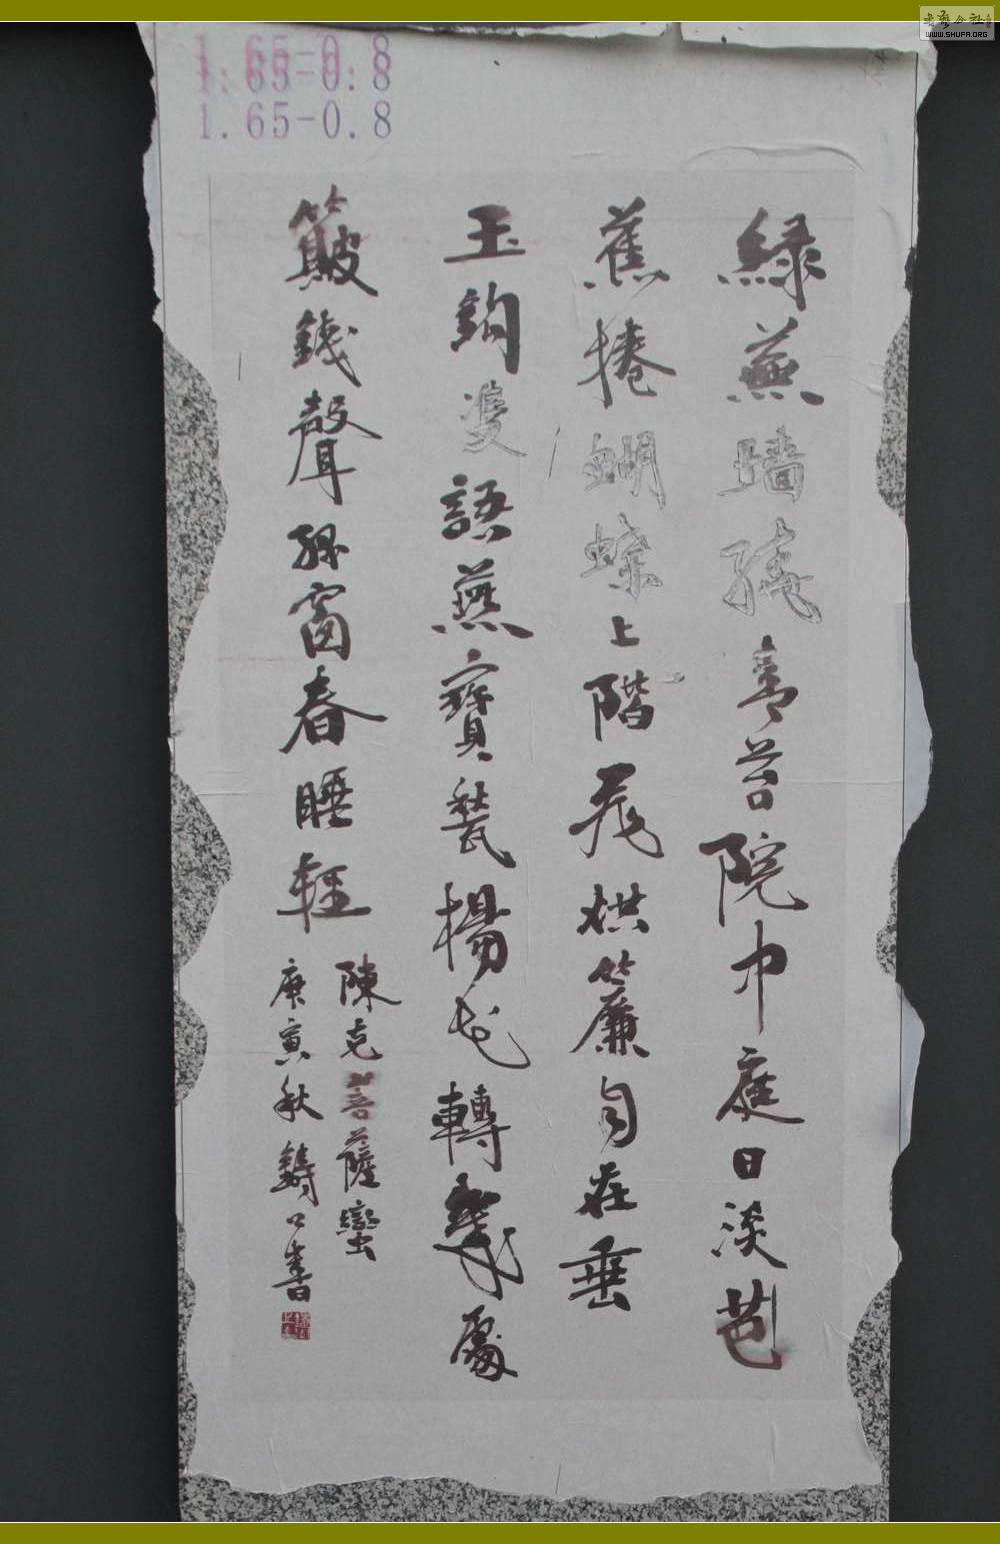 1.65-0.8
1.65-0.8
1.65-0.8
綠蕪墙繞青苔院中庭日淡芭
蕉捲蝴蝶上階飛烘簾自在垂
玉鉤雙語燕寶甃楊花轉幾處
簸錢聲綠窗春睡輕
陳克菩薩蠻
庚寅秋鑄公書
WWW.SHUFA.ORG